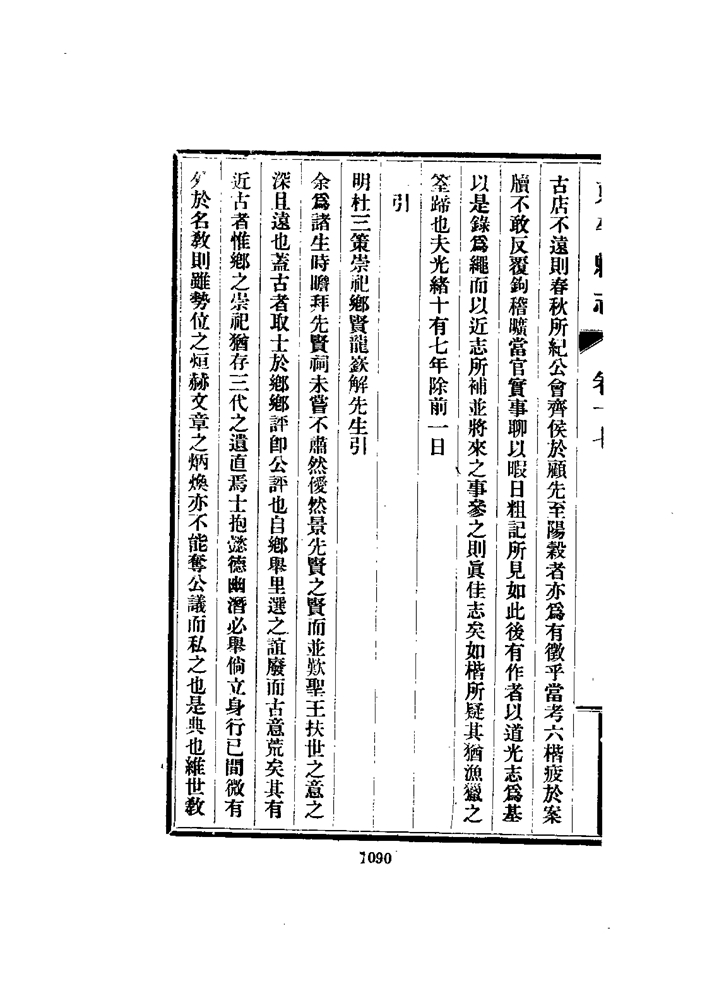 卷十七
古店不遠則春秋所紀公會齊侯於顧先至陽穀者亦爲有徵乎當考六楷疲於案
牘不敢反覆鉤稽曠當官實事聊以暇日粗記所見如此後有作者以道光志爲基
以是錄爲繩而以近志所補並將來之事參之則眞佳志矣如楷所疑其猶漁獵之
筌蹄也夫光緒十有七年除前一日
引
明杜三策崇祀鄉賢龍欽解先生引
余爲諸生時瞻拜先賢祠未嘗不肅然僾然景先賢之賢而並歎聖王扶世之意之
深且遠也蓋古者取士於鄉鄉評卽公評也自鄉舉里選之誼廢而古意荒矣其有
近古者惟鄉之崇祀猶存三代之遺直焉士抱懿德幽潛必舉倘立身行已間微有
外於名敎則雖勢位之烜赫文章之炳煥亦不能奪公議而私之也是典也維世敎
1090